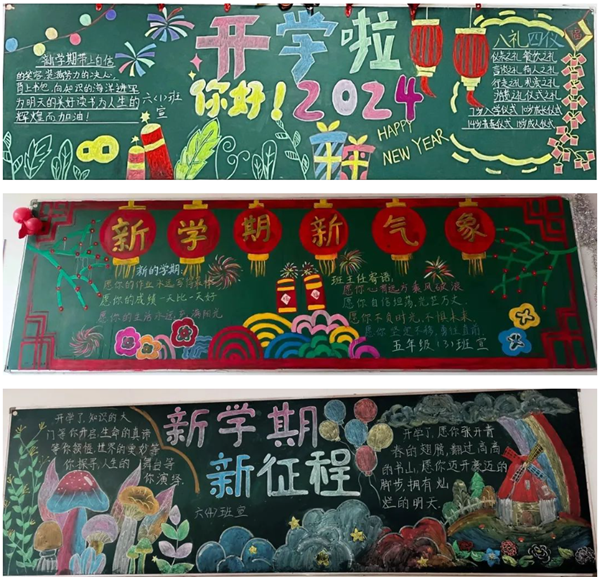 新学期带上自信
的笑容,装满努力的决心,
背上书包,向知识的海洋进军
为明天的美好读书为人生的
辉煌而加油!
六(1)班
宣
开学啦
你好!2024
HAPPY
NEW YEAR
八礼四仪
仪表之礼 餐饮之礼
言谈之礼 待人之礼
行走之礼 观赏之礼
游览之礼 仪式之礼
7岁入学仪式 10岁成长仪式
14岁青春仪式 18岁成人仪式
新学期新气象
新的学期
愿你的成绩一天比一天好
班主任寄语
愿你自信坦荡,光芒万丈,
愿你不负时光,不惧未来
五年级(3)班宣
开学了,知识的大
门等你开启,生命的真谛
等你领悟,世界的奥妙等
你探寻,人生的舞台等
你演绎
新学期
新征程
六(4)班宣
开学了,愿你张开青
春的翅膀,翻过高高
的书山,愿你迈开豪迈的
脚步,拥有灿
烂的明天.